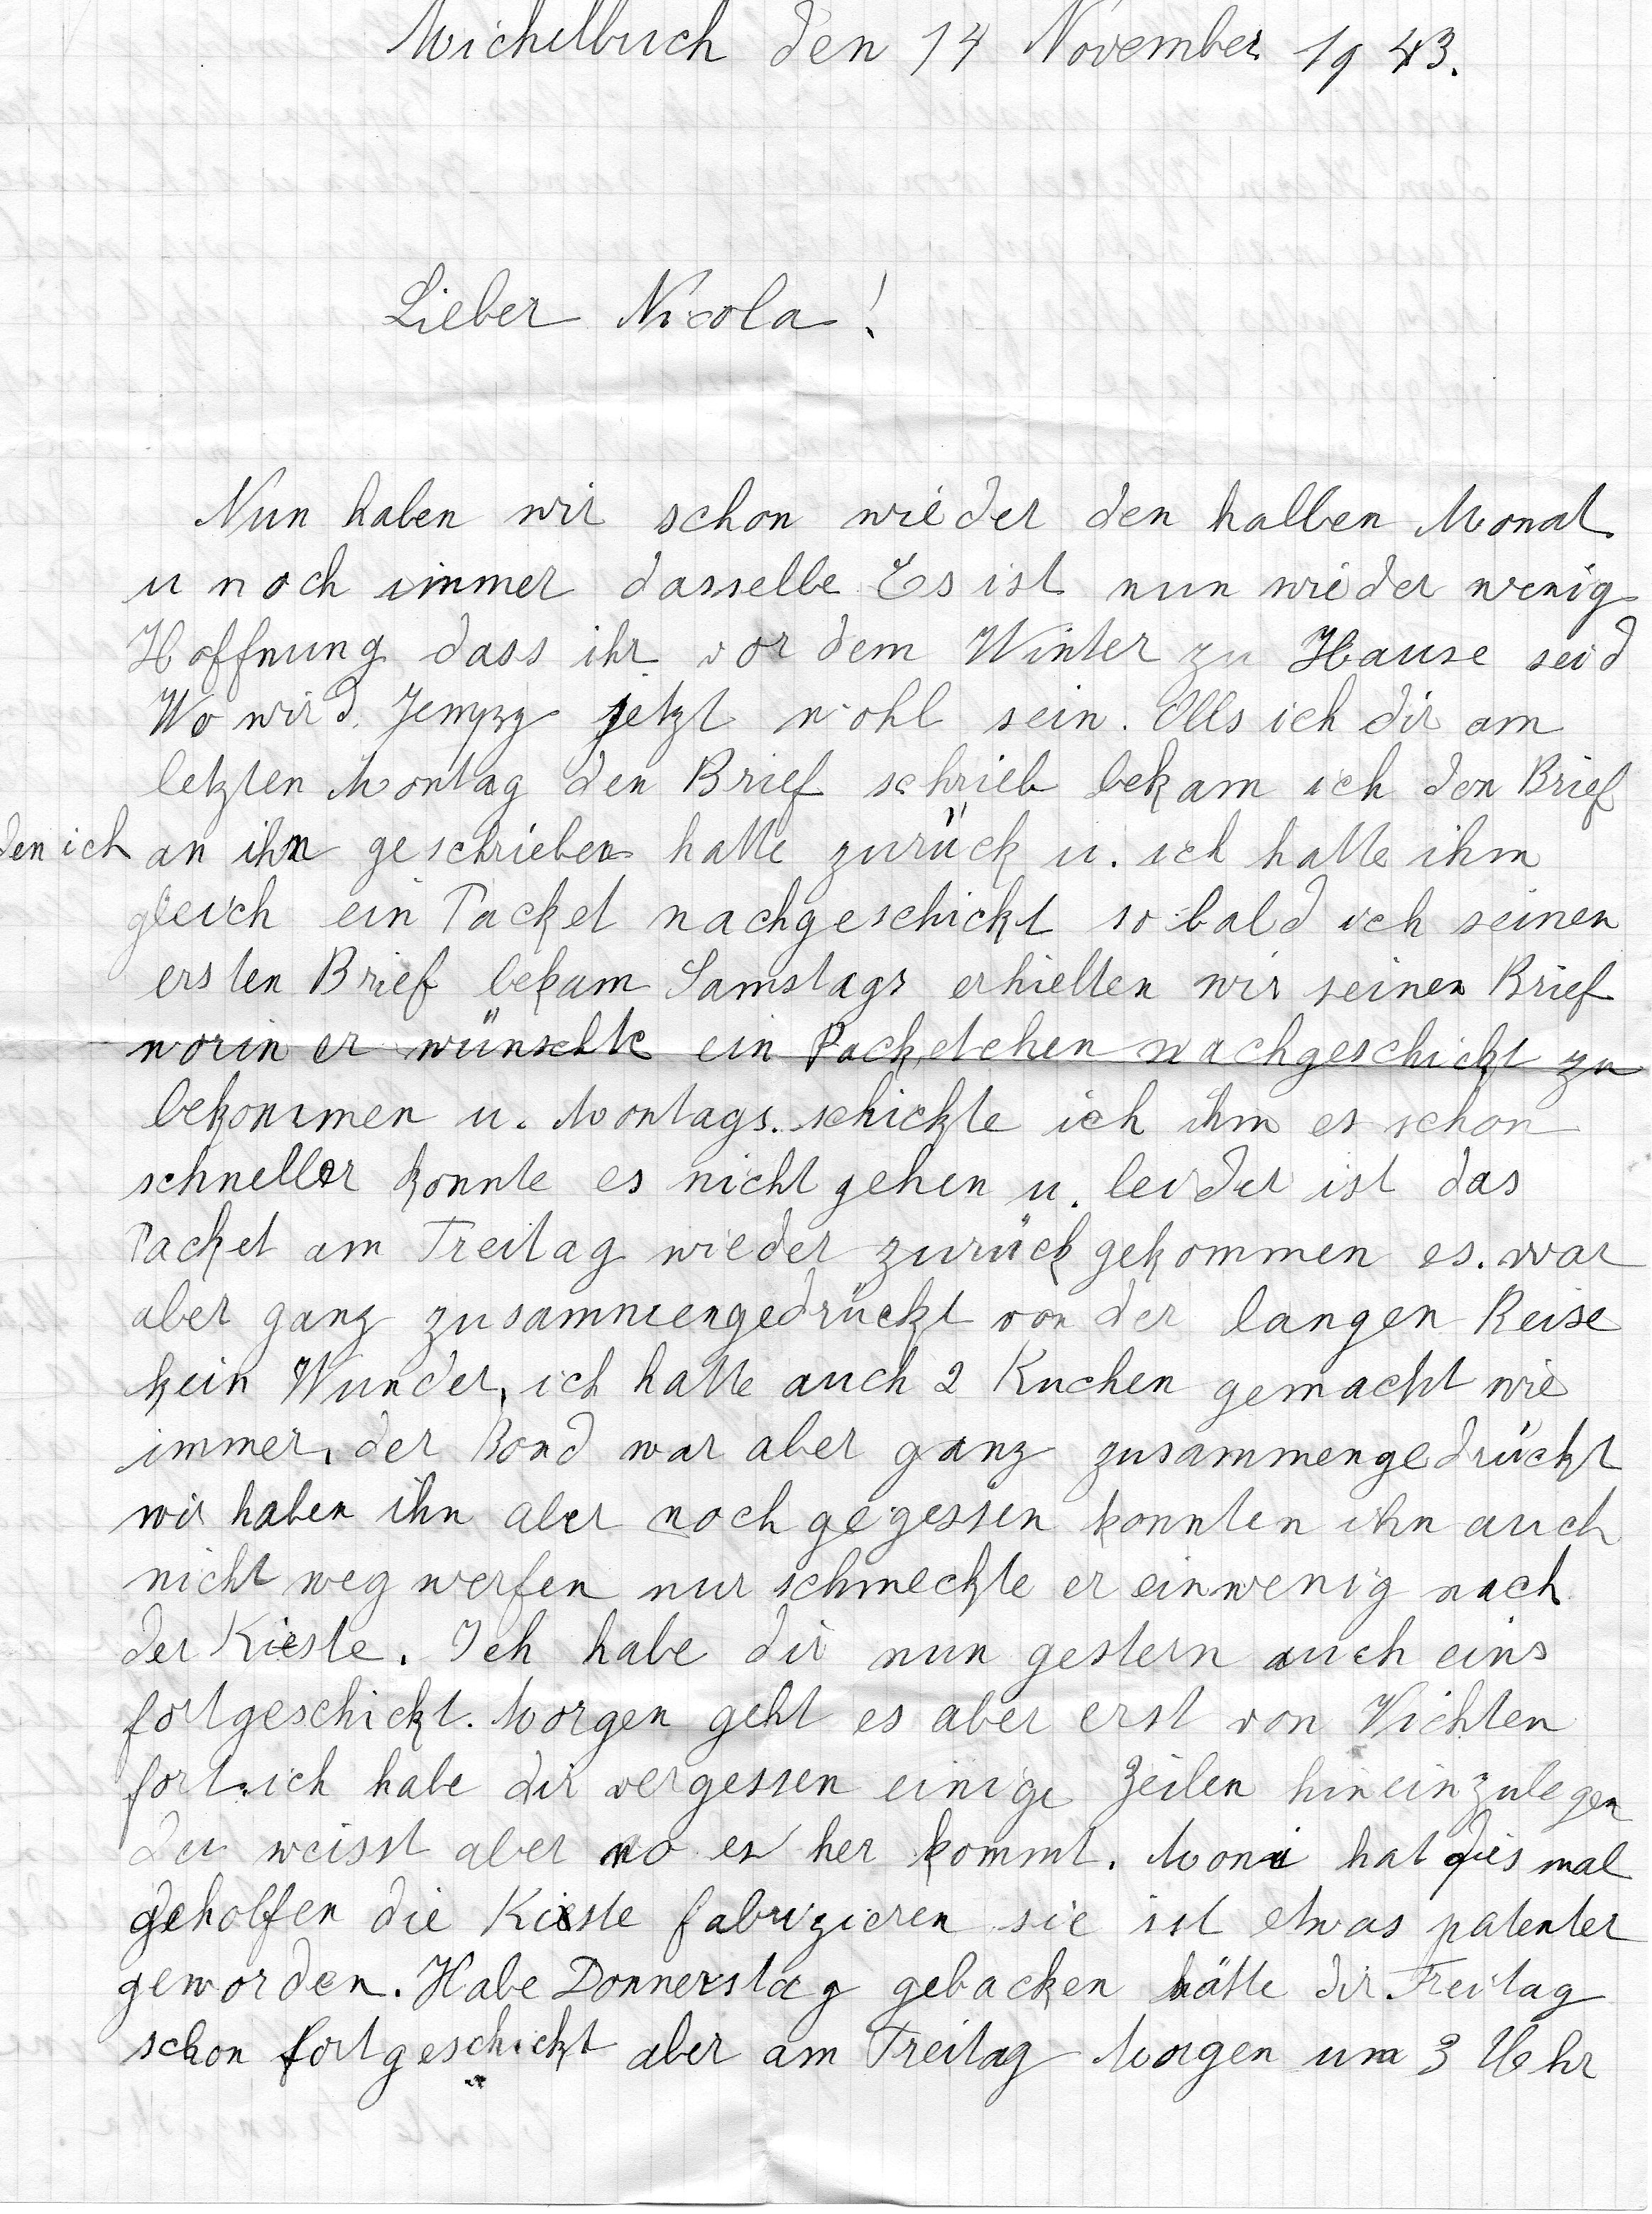 Michelbuch den 14 November 1943.
Lieber Nicola!
Nun haben wir schon wieder den halben Monat
u noch immer dasselbe Es ist nun wieder wenig
Hoffnung dass ihr vor dem Winter zu Hause seid
Wo wird Jempy jetzt wohl sein. Als ich dir am
letzten Montag den Brief schrieb bekam ich den Brief
den ich an ihn geschrieben hatte zurück u. ich hatte ihm
gleich ein Packet nachgeschickt sobald ich seinen
ersten Brief bekam Samstags erhielten wir seinen Brief
worin er wünschte ein Packetchen nachgeschickt zu
bekommen u. Montags. schickte ich ihm es schon
schneller konnte es nicht gehen u. leider ist das
Packet am Freitag wieder zurück gekommen es. war
aber ganz zusammengedrückt von der langen Reise
kein Wunder, ich hatte auch 2 Kuchen gemacht wie
immer, der Bond war aber ganz zusammengedrückt
wir haben ihn aber noch gegessen konnten ihn auch
nicht weg werfen nur schmeckte er einwenig nach
der Kieste. Ich habe dir nun gestern auch eins
fortgeschickt. Morgen geht es aber erst von Vichten
fort. ich habe dir vergessen einige Zeilen hineinzulegen
du weisst aber wo es her kommt. Moni hat dies mal
geholfen die Kiste fabrizieren sie ist etwas patenter
geworden. Habe Donnerstag gebacken hätte dir Freitag
schon fortgeschickt aber am Freitag Morgen um 3 Uhr